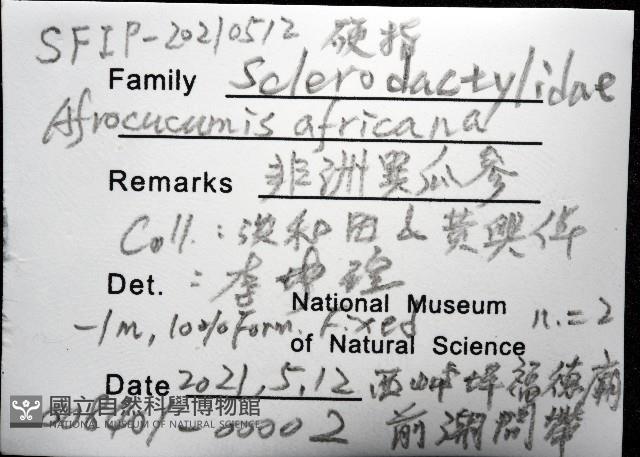 SFIP-20210512 硬指
Family Sclerodactylidae
Afrocucumis africana
Remarks 非洲異瓜參
Coll.: 洪和田 & 黃興倬
Det. : 李坤瑄
National Museum
-1m, 100% Form. Fixed n.=2
of Natural Science
Date 2021,5,12 西嶼坪福德廟
國立自然科學博物館
NATIONAL MUSEUM OF NATURAL SCIENCE
-00002 前潮間帶